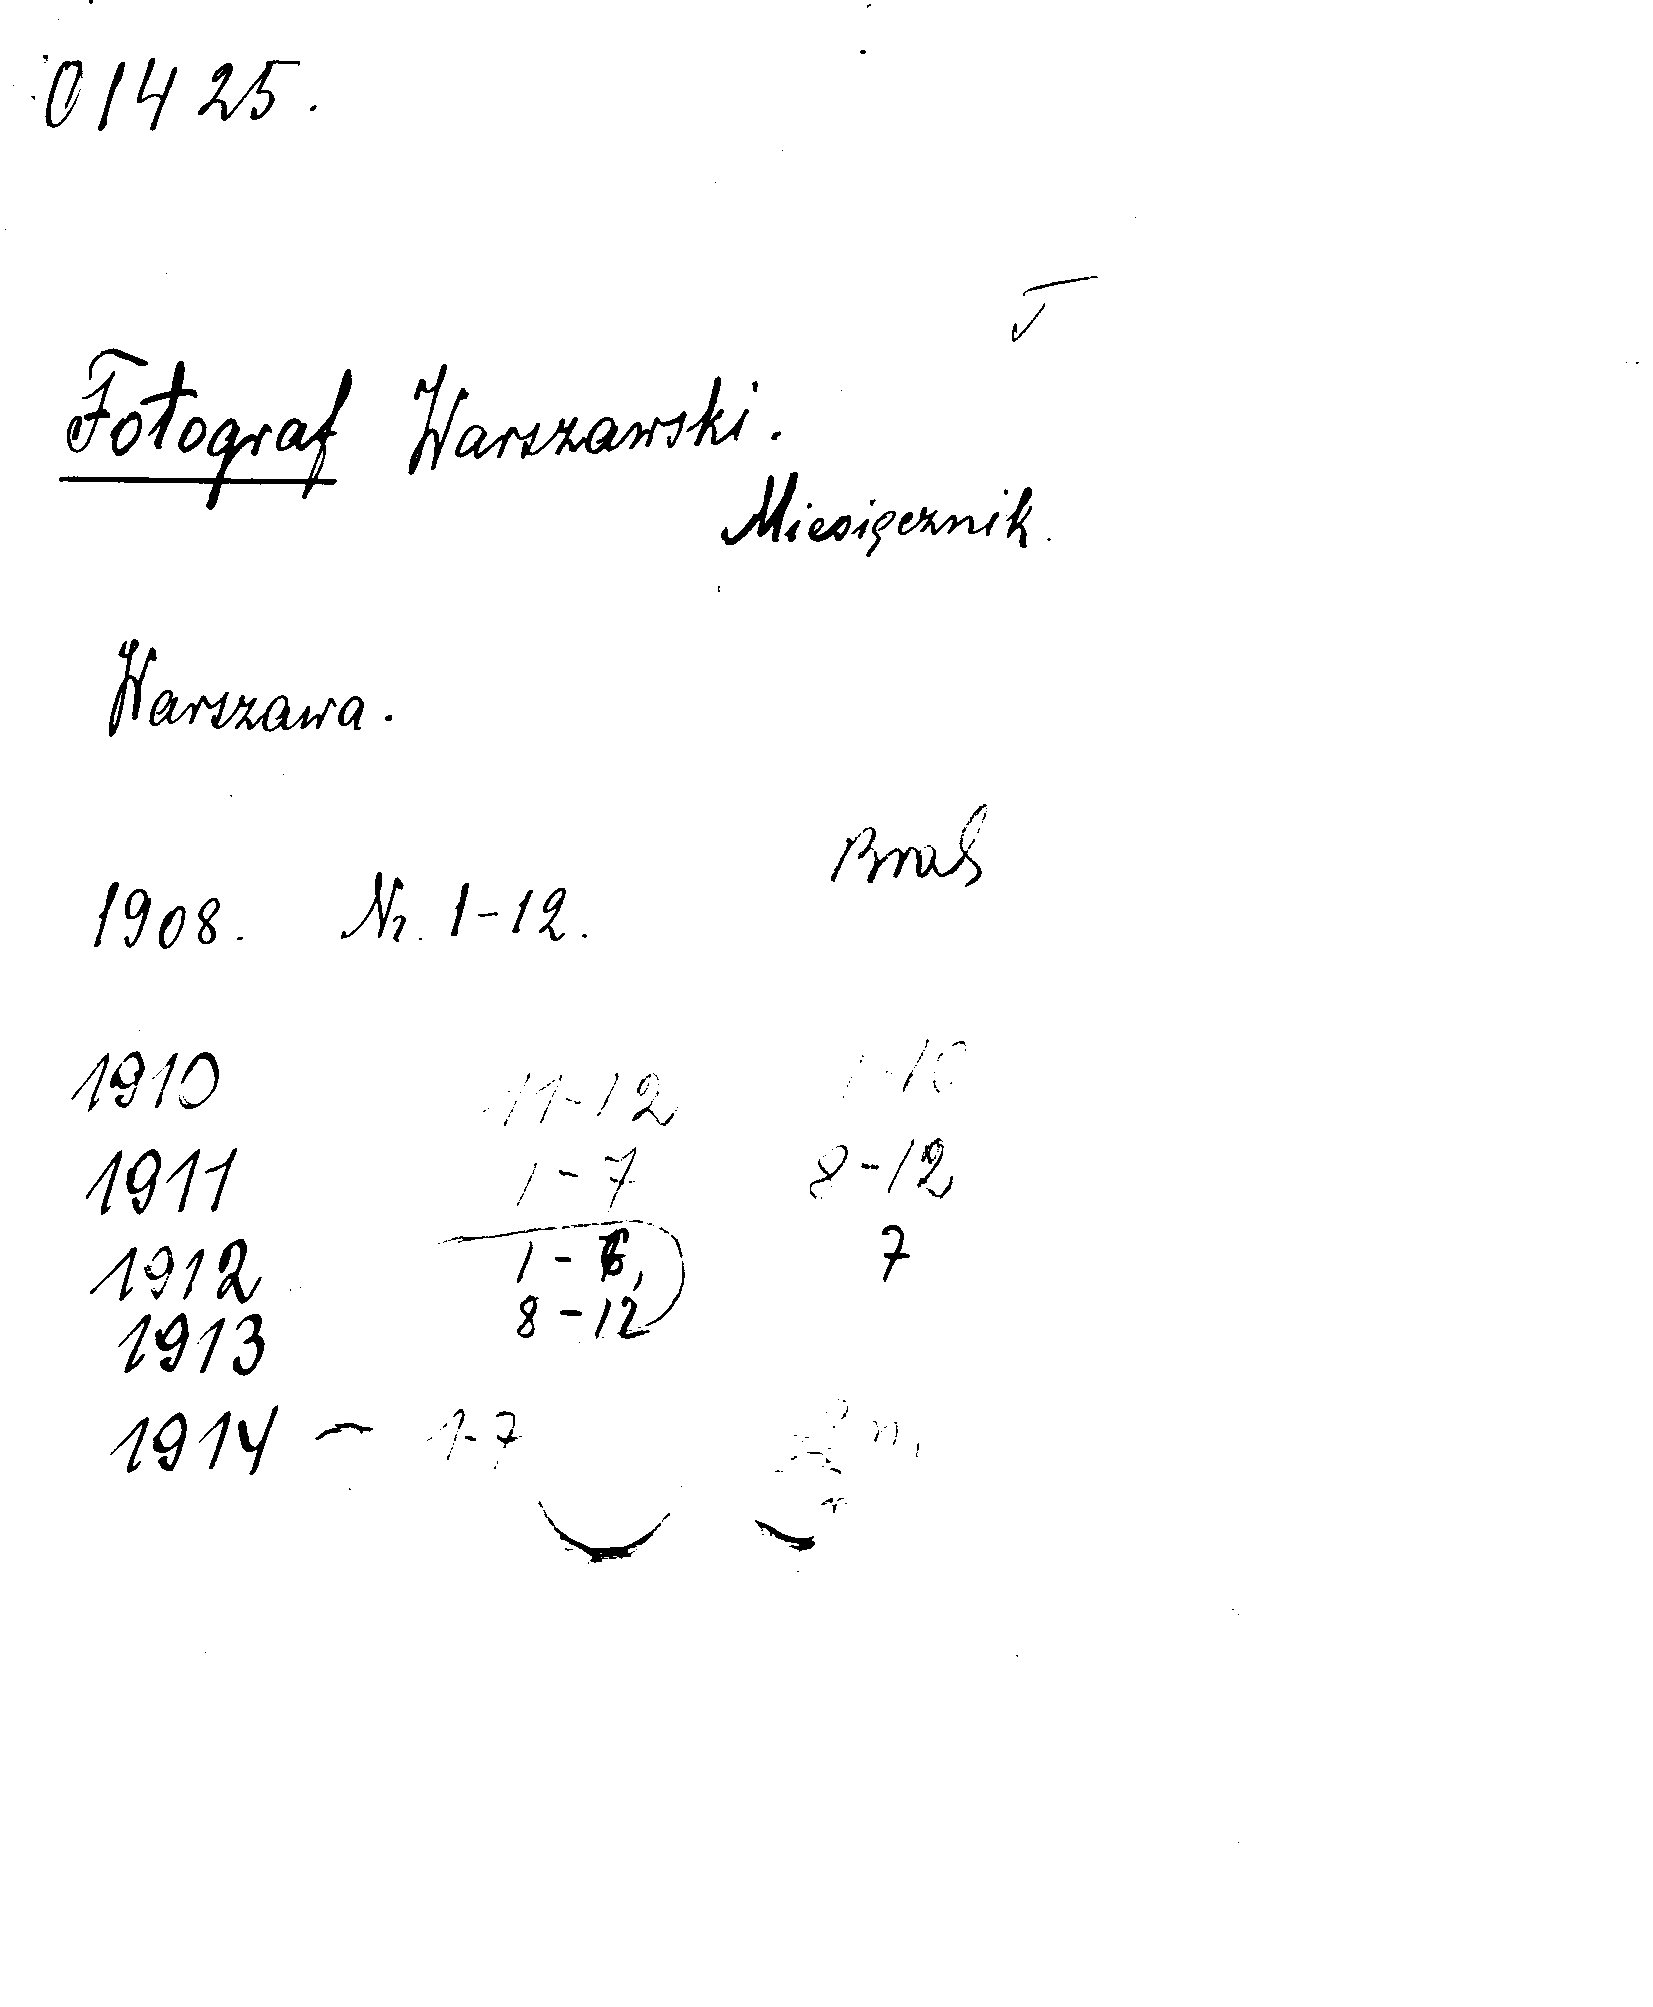 01425.
Fotograf Warszawski.
Miesięcznik.
Warszawa.
Brak
1908. Nr. 1-12.
1910 11-12 1-10
1911 1-7 8-12
1912 1-6, 7
8-12
1913
1914 — 1-7